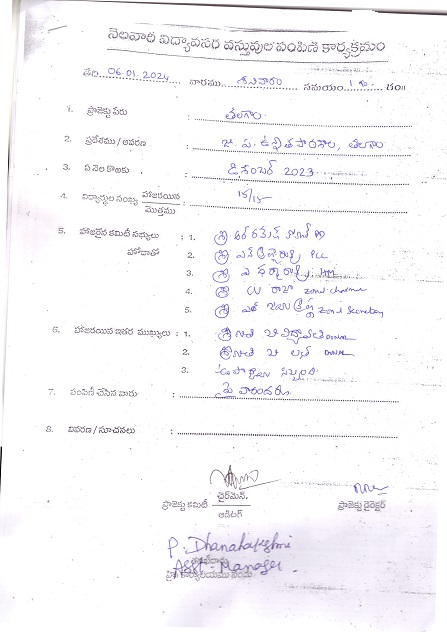 నెలవారీ విద్యావసర వస్తువుల పంపిణీ కార్యక్రమం
తేది. 06.01.2024 వారము శనివారం సమయం 1 గం॥
1. ప్రాజెక్టు పేరు : తేలగాం
2. ప్రదేశము / ఆవరణ : జి. ప. ఉన్నత పాఠశాల, తేలగాం
3. ఏ నెల కొఱకు : డిసెంబర్ 2023
4. విద్యార్థుల సంఖ్య హాజరయిన / మొత్తము : 15/15
5. హాజరైన కమిటీ సభ్యులు : 1. శ్రీ ఆర్ రమేష్ PD
హోదాతో 2. శ్రీ PLL
3. శ్రీ HM
4. శ్రీ CV రాజా zone chairman
5. శ్రీ zone secretary
6. హాజరయిన ఇతర ముఖ్యులు : 1. శ్రీమతి
2. శ్రీమతి
3. ఉపాధ్యాయ సిబ్బంది
7. పంపిణీ చేసిన వారు : పై వారందరూ
8. వివరణ / సూచనలు :
ప్రాజెక్టు కమిటీ చైర్‌మెన్. / ఆడిటర్
ప్రాజెక్టు డైరెక్టర్
P. Dhanalakshmi
Asst. Manager.